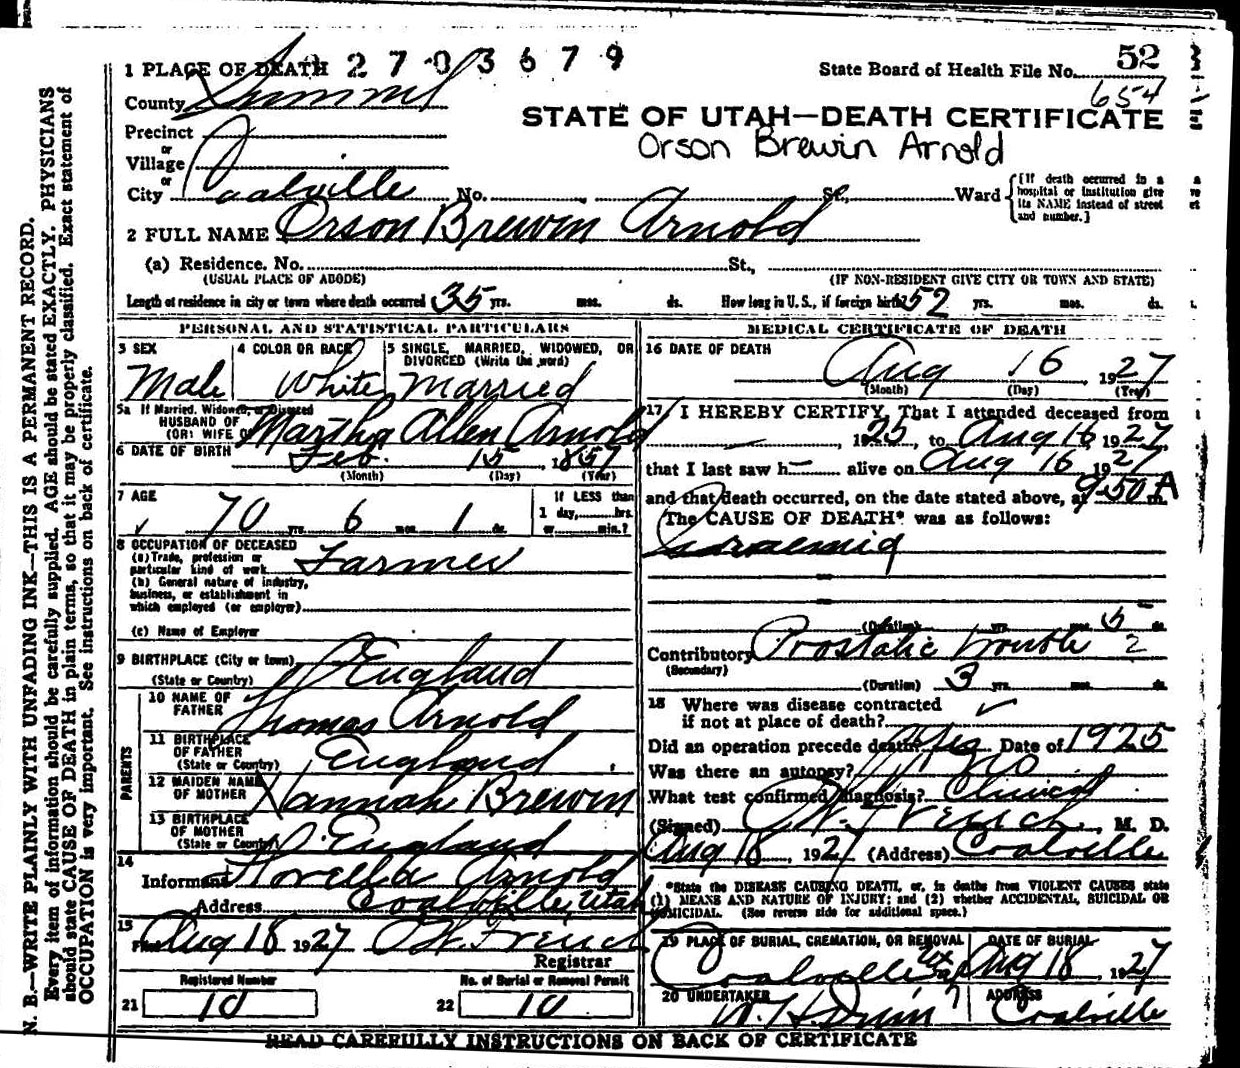 1 PLACE OF DEATH 2703679
State Board of Health File No. 52
654
County Summit
STATE OF UTAH—DEATH CERTIFICATE
Orson Brewin Arnold
Precinct
or
Village
or
City Coalville No. St., Ward
[If death occurred in a hospital or institution give its NAME instead of street and number.]
2 FULL NAME Orson Brewin Arnold
(a) Residence. No. St.,
(USUAL PLACE OF ABODE) (IF NON-RESIDENT GIVE CITY OR TOWN AND STATE)
Length of residence in city or town where death occurred 35 yrs. mos. ds. How long in U.S., if foreign birth? 52 yrs. mos. ds.
PERSONAL AND STATISTICAL PARTICULARS
3 SEX
Male
4 COLOR OR RACE
White
5 SINGLE, MARRIED, WIDOWED, OR DIVORCED (Write the word)
Married
5a If Married, Widowed, or Divorced
HUSBAND OF
(OR) WIFE OF Martha Allen Arnold
6 DATE OF BIRTH Feb. 15 1857
(Month) (Day) (Year)
7 AGE
70 yrs. 6 mos. 1 ds.
If LESS than
1 day, hrs.
or min.?
8 OCCUPATION OF DECEASED
(a) Trade, profession or
particular kind of work Farmer
(b) General nature of industry,
business, or establishment in
which employed (or employer)
(c) Name of Employer
9 BIRTHPLACE (City or town)
(State or Country) England
PARENTS
10 NAME OF
FATHER Thomas Arnold
11 BIRTHPLACE
OF FATHER
(State or Country) England
12 MAIDEN NAME
OF MOTHER Hannah Brewin
13 BIRTHPLACE
OF MOTHER
(State or Country) England
14
Informant Arnold
Address Coalville, Utah
15
Filed Aug 18 1927 French
Registrar
Registered Number
21 10
No. of Burial or Removal Permit
22 10
MEDICAL CERTIFICATE OF DEATH
16 DATE OF DEATH
Aug 16 1927
(Month) (Day) (Year)
17 I HEREBY CERTIFY, That I attended deceased from
1925, to Aug 16 1927
that I last saw h alive on Aug 16 1927
and that death occurred, on the date stated above, at 9-50 A m.
The CAUSE OF DEATH* was as follows:
(Duration) yrs. mos. 5 ds.
Contributory Prostatic trouble 2
(Secondary)
(Duration) 3 yrs. mos. ds.
18 Where was disease contracted
if not at place of death?
Did an operation precede death? Yes Date of 1925
Was there an autopsy? No
What test confirmed diagnosis? Clinical
(Signed) French, M. D.
Aug 18, 1927 (Address) Coalville
*State the DISEASE CAUSING DEATH, or, in deaths from VIOLENT CAUSES state
(1) MEANS AND NATURE OF INJURY; and (2) whether ACCIDENTAL, SUICIDAL OR
HOMICIDAL. (See reverse side for additional space.)
19 PLACE OF BURIAL, CREMATION, OR REMOVAL
Coalville
DATE OF BURIAL
Aug 18, 1927
20 UNDERTAKER
ADDRESS
Coalville
READ CAREFULLY INSTRUCTIONS ON BACK OF CERTIFICATE
N. B.—WRITE PLAINLY WITH UNFADING INK—THIS IS A PERMANENT RECORD.
Every item of information should be carefully supplied. AGE should be stated EXACTLY. PHYSICIANS
should state CAUSE OF DEATH in plain terms, so that it may be properly classified. Exact statement of
OCCUPATION is very important. See instructions on back of certificate.